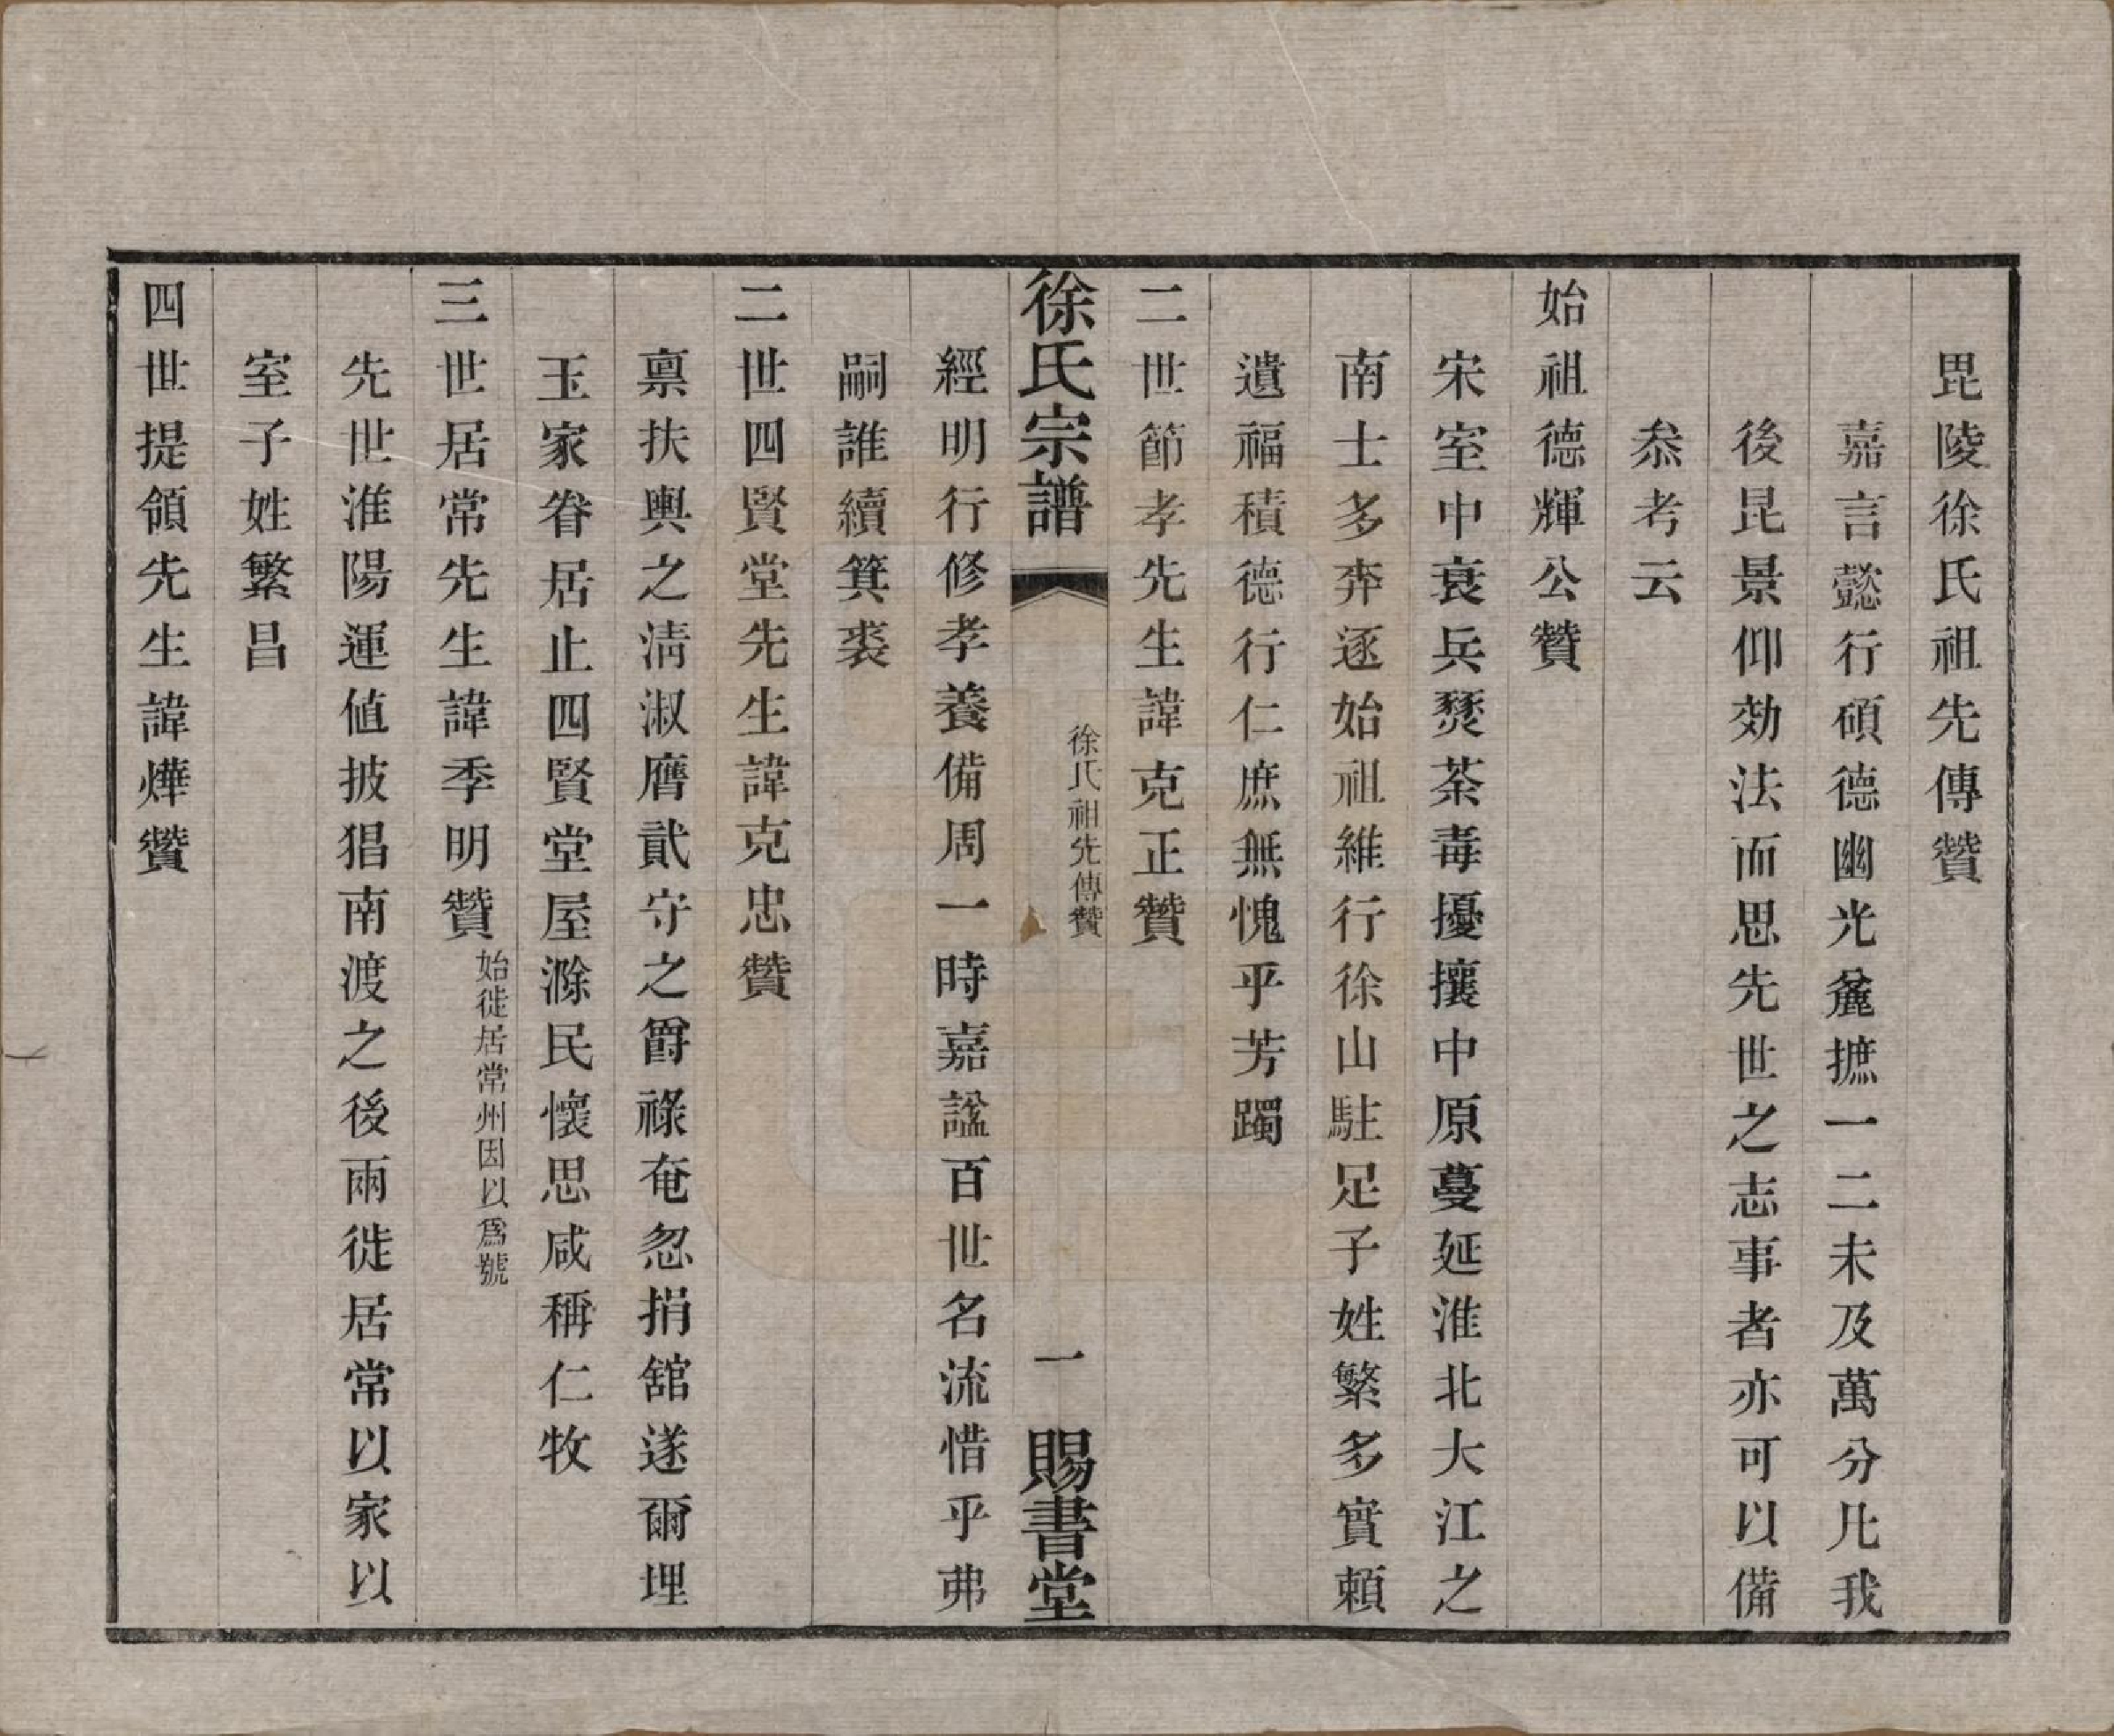 毘陵徐氏祖先傳贊
嘉言懿行碩德幽光麄摭一二未及萬分凡我
後昆景仰効法而思先世之志事者亦可以備
叅考云
始祖德輝公贊
宋室中衰兵燹荼毒擾攘中原蔓延淮北大江之
南士多奔逐始祖維行徐山駐足子姓繁多實賴
遺福積德行仁庶無愧乎芳躅
二世節孝先生諱克正贊
徐氏宗譜
徐氏祖先傳贊
一
賜書堂
經明行修孝養備周一時嘉謚百世名流惜乎弗
嗣誰續箕裘
二世四賢堂先生諱克忠贊
禀扶輿之淸淑膺貳守之爵祿奄忽捐舘遂爾埋
玉家眷居止四賢堂屋滁民懷思咸稱仁牧
三世居常先生諱季明贊始徙居常州因以爲號
先世淮陽運値披猖南渡之後兩徙居常以家以
室子姓繁昌
四世提領先生諱燁贊